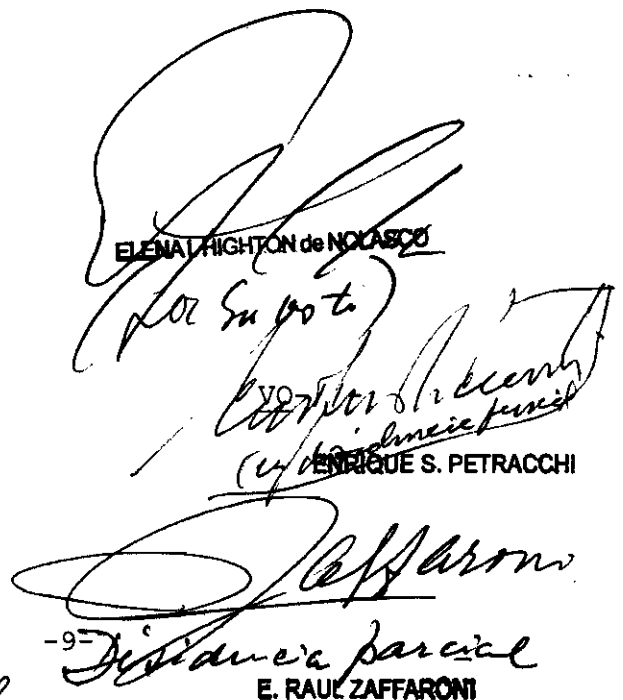 ELENA I. HIGHTON de NOLASCO
(por su voto)
VO
(en disidencia parcial)
ENRIQUE S. PETRACCHI
Zaffaroni
-9-
Disidencia parcial
E. RAUL ZAFFARONI